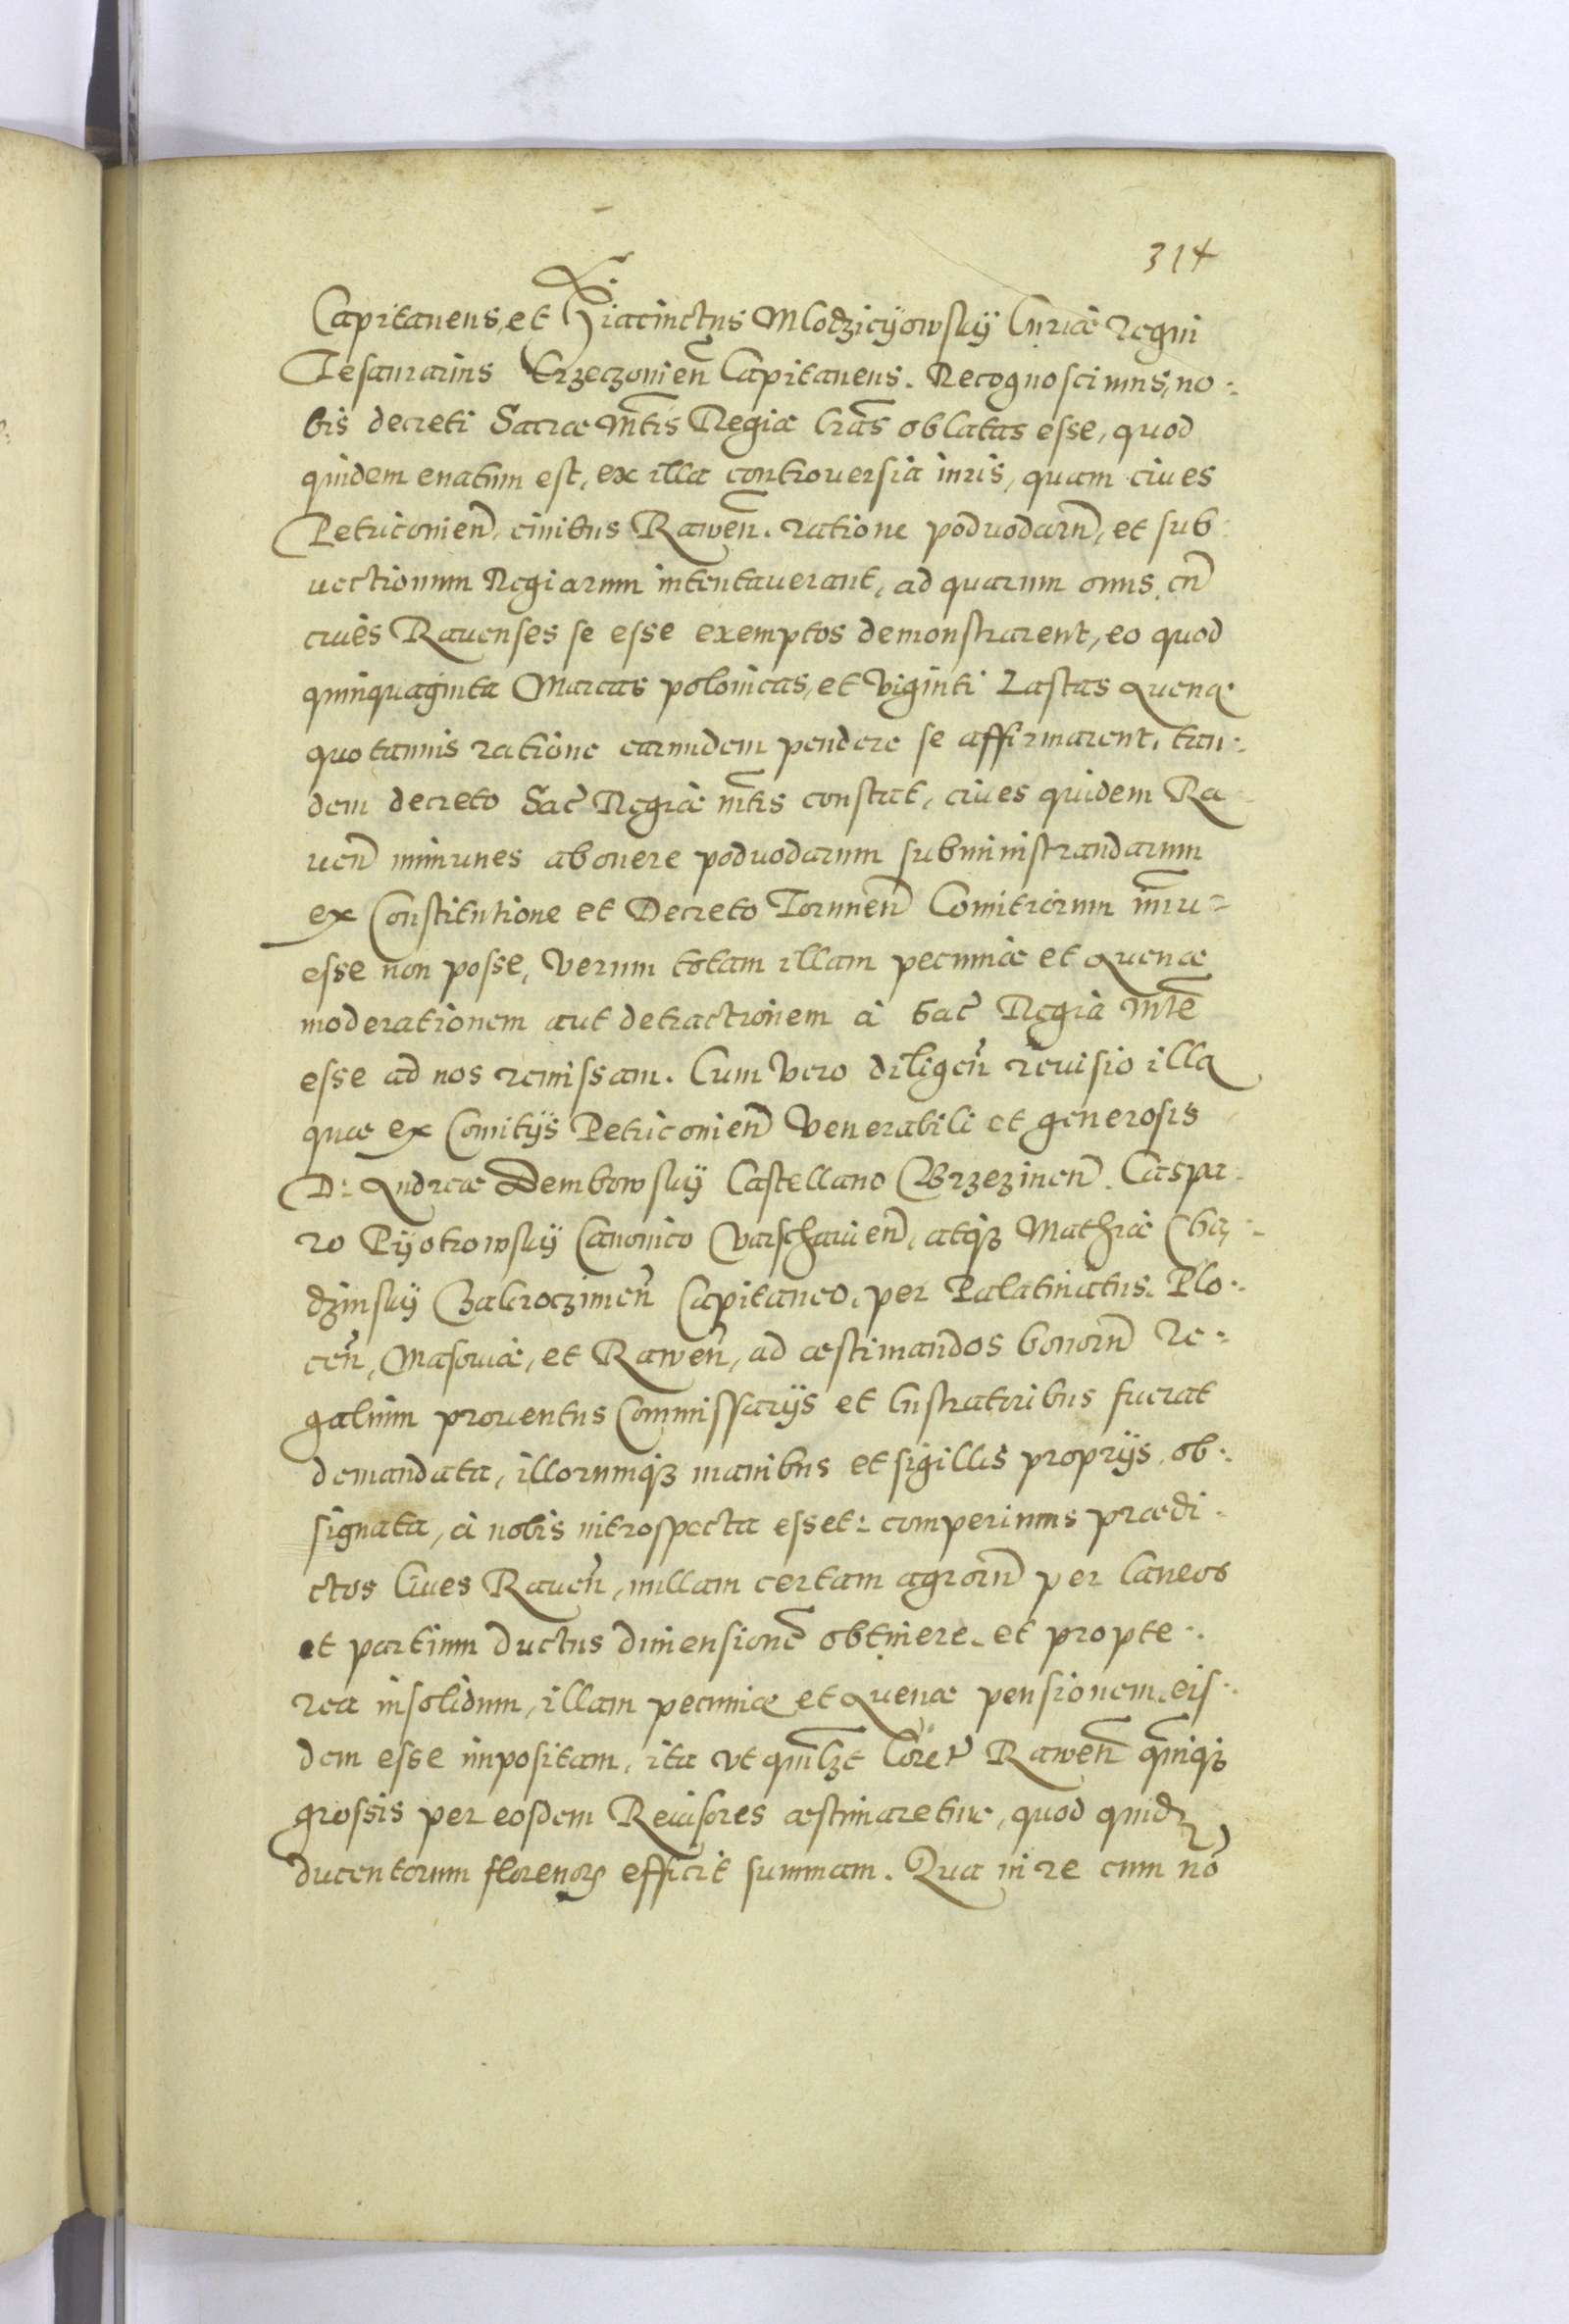 314
Capitaneus, et Hiacinctus Mlodzieyowsky Curiæ Regni
Tesaurarius Krzeczonien̄ Capitaneus. Recognoscimus, no-
bis decreti Sacræ Mt̄is Regiæ lr̄as oblatas esse, quod
quidem enatum est, ex illa controversia iuris, quam ciues
Petriconien̄, ciuibus Rawen̄. ratione podvodarū, et sub
uectionum Regiarum intentauerant, ad quarum onus, cū
ciues Rauenses se esse exemptos demonstrarent, eo quod
quinquaginta Marcas polonicas, et Viginti Lastas Auenæ
quotannis ratione earumdem pendere se affirmarent, tan-
dem decreto Sac̄ Regiæ mt̄is constat, ciues quidem Ra-
uen̄ immunes ab onere podvodarum subministrandarum
ex Constitutione et Decreto Torunen̄ Comitiorum
esse non posse, Verum totam illam pecuniæ et Auenæ
moderationem aut detractionem à Sac̄ Regia Mt̄e
esse ad nos remissam. Cum Vero diligen̄ reuisio illa
quæ ex Comitijs Petriconien̄ Venerabili et generosis
D: Andreæ Dembowsky Castellano Brzezinen̄. Caspa-
ro Pyotrowsky Canonico Varschauien̄, atq₃ Mathiæ Cha-
dzinsky Zakroczimen̄ Capitaneo, per Palatinatus Plo-
cen̄, Masouiæ, et Rawen̄, ad æstimandos bonorū re-
galium prouentus Commissarijs et lustratoribus fuerat
demandata, illorumq₃ manibus et sigillis proprijs ob-
signata, à nobis introspecta esset: comperimus prædi-
ctos Ciues Rauen̄, nullam certam agrorū per laneos
et partium ductus dimensionē obtinere, et propte-
rea insolidum, illam pecuniæ et Auenæ pensionem, eis-
dem esse impositam, ita vt Rawen̄ quinq₃
grossis per eosdem Reuisores æstimaretur, quod quidē
ducentorum florenorꝫ efficit summam. Qua in re cum no